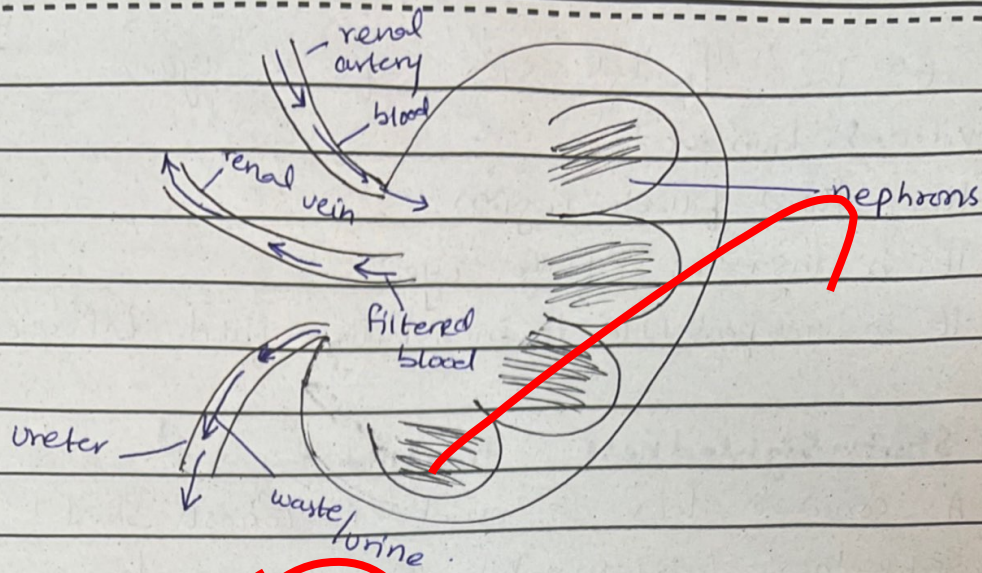 renal
artery
blood
renal
vein
nephrons
filtered
blood
ureter
waste/urine